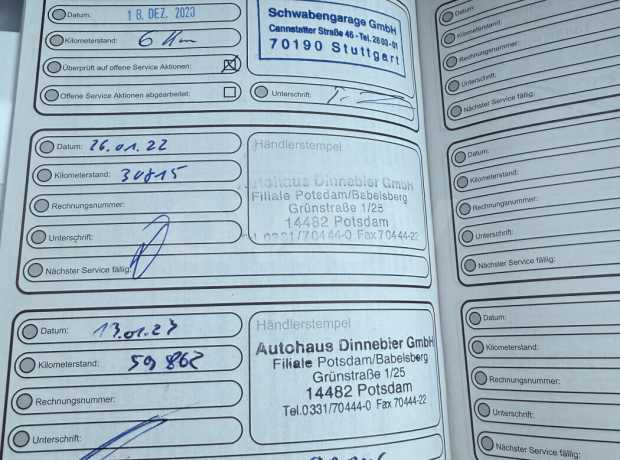 Datum: 18. DEZ. 2020
Kilometerstand: 6 Km
Überprüft auf offene Service Aktionen:
Offene Service Aktionen abgearbeitet:
Schwabengarage GmbH
Cannstatter Straße 46 - Tel. 28 03 - 01
70190 Stuttgart
Unterschrift:
Datum: 26.01.22
Kilometerstand: 30815
Rechnungsnummer:
Unterschrift:
Nächster Service fällig:
Händlerstempel
Autohaus Dinnebier GmbH
Filiale Potsdam/Babelsberg
Grünstraße 1/25
14482 Potsdam
Tel. 0331/70444-0 Fax 70444-22
Datum: 13.01.23
Kilometerstand: 59862
Rechnungsnummer:
Unterschrift:
Händlerstempel
Autohaus Dinnebier GmbH
Filiale Potsdam/Babelsberg
Grünstraße 1/25
14482 Potsdam
Tel.0331/70444-0 Fax 70444-22
Datum:
Kilometerstand:
Rechnungsnummer:
Unterschrift:
Nächster Service fällig:
Datum:
Kilometerstand:
Rechnungsnummer:
Unterschrift:
Nächster Service fällig:
Datum:
Kilometerstand:
Rechnungsnummer:
Unterschrift:
Nächster Service fällig: